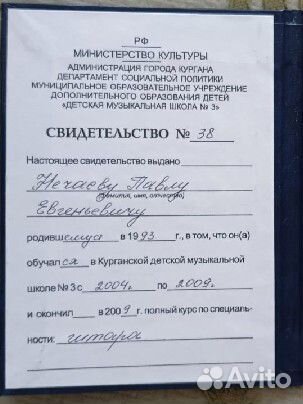 РФ
МИНИСТЕРСТВО КУЛЬТУРЫ
АДМИНИСТРАЦИЯ ГОРОДА КУРГАНА
ДЕПАРТАМЕНТ СОЦИАЛЬНОЙ ПОЛИТИКИ
МУНИЦИПАЛЬНОЕ ОБРАЗОВАТЕЛЬНОЕ УЧРЕЖДЕНИЕ
ДОПОЛНИТЕЛЬНОГО ОБРАЗОВАНИЯ ДЕТЕЙ
«ДЕТСКАЯ МУЗЫКАЛЬНАЯ ШКОЛА № 3»
СВИДЕТЕЛЬСТВО № 38
Настоящее свидетельство выдано
Нечаеву Павлу
(фамилия, имя, отчество)
Евгеньевичу
родившемуся в 1993 г., в том, что он(а)
обучался в Курганской детской музыкальной
школе № 3 с 2004 по 2009.
и окончил в 2009 г. полный курс по специаль-
ности: гитара
Avito